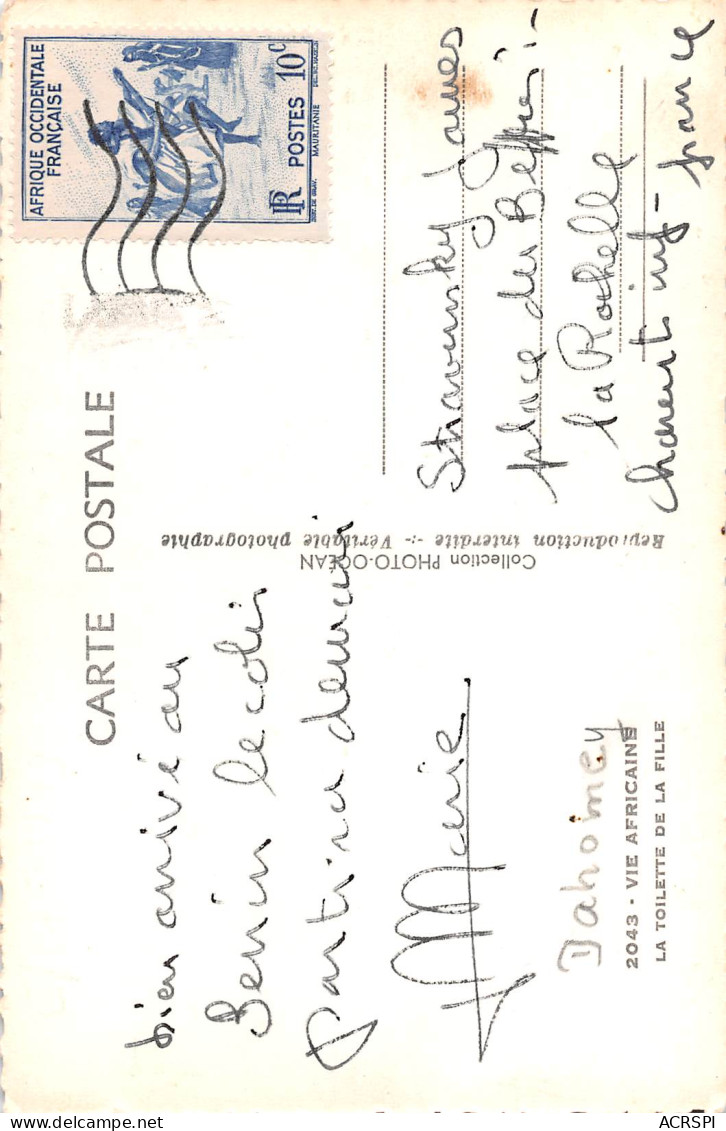 CARTE POSTALE
AFRIQUE OCCIDENTALE
FRANÇAISE
RF POSTES 10c
MAURITANIE
bien arrivé au
Benin le colis
partira demain
Marie
Dahomey
2043 - VIE AFRICAINE
LA TOILETTE DE LA FILLE
Collection PHOTO-OCÉAN
Reproduction interdite -:- Véritable photographie
Stravinsky James
place du
la Rochelle
charente inf - france
ACRSPI